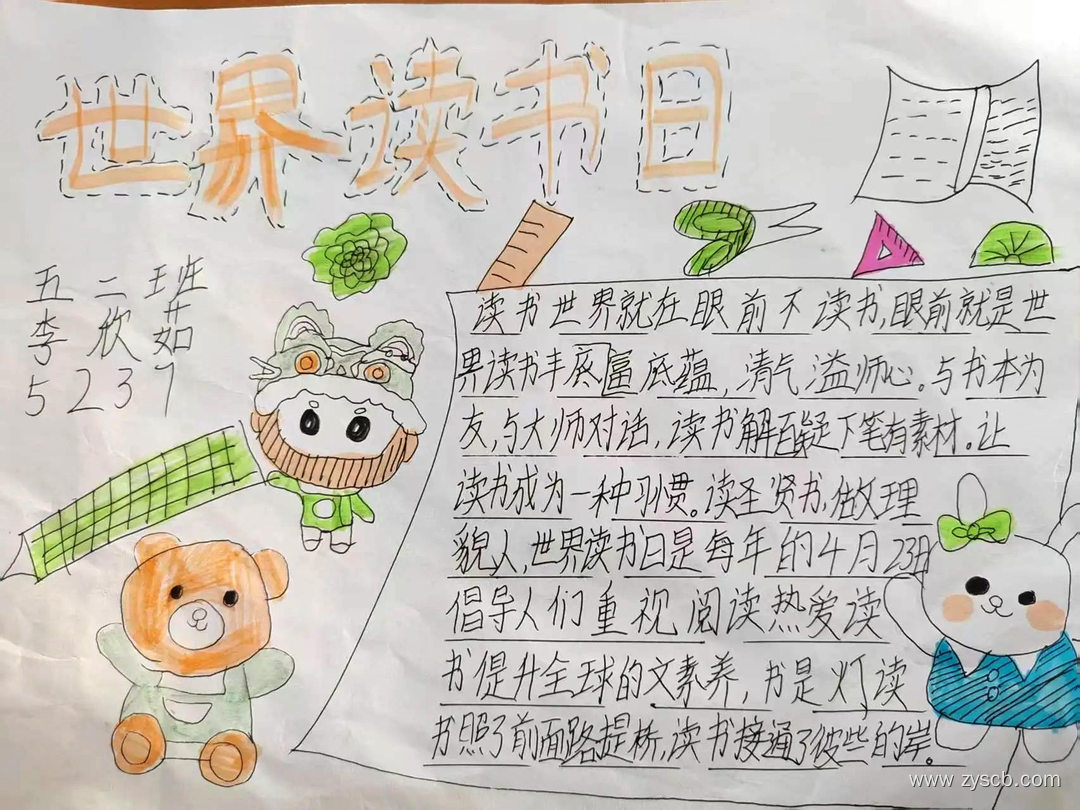 世界读书日
五二班
李欣茹
5237
读书世界就在眼前不读书,眼前就是世
界读书丰底蕴,清气溢师心。与书本为
友,与大师对话,读书解百疑下笔有素材。让
读书成为一种习惯。读圣贤书,做文理
貌人,世界读书日是每年的4月23日
倡导人们重视阅读热爱读
书促升全球的文素养,书是灯读
书照了前面路提桥,读书接通了彼些的岸。
www.zyscb.com